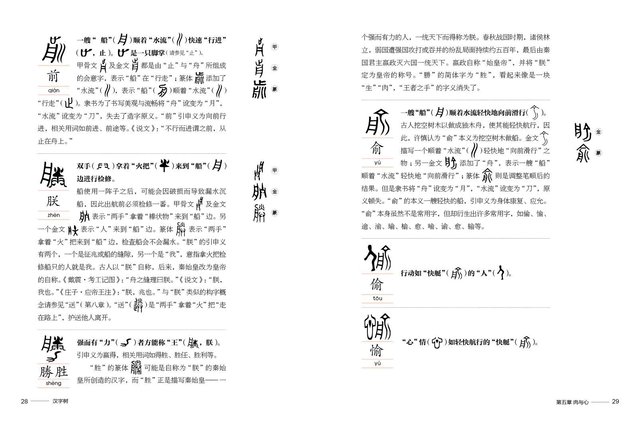 前
qián
一艘“船”()顺着“水流”()快速“行进”
(,止)。是一只脚掌(请参见“止”)。
甲骨文及金文都是由“止”与“舟”所组成
的会意字，表示“船”在“行走”；篆体添加了
“水流”()，表示“船”()顺着“水流”()
“行走”()。隶书为了书写美观与流畅将“舟”讹变为“月”，
“水流”讹变为“刀”，失去了造字原义。“前”引申义为向前行
进，相关用词如前进、前途等。《说文》：“不行而进谓之前，从
止在舟上。”
甲
金
篆
朕
zhèn
双手()拿着“火把”()来到“船”()
边进行检修。
船使用一阵子之后，可能会因破损而导致漏水沉
船，因此出航前必须检修一番。甲骨文及金文
表示“两手”拿着“棒状物”来到“船”边。另
一个金文表示“人”来到“船”边。篆体表示“两手”
拿着“火”把来到“船”边，检查船会不会漏水。“朕”的引申义
有两个，一个是征兆或船的缝隙，另一个是“我”，意指拿火把检
修船只的人就是我。古人以“朕”自称，后来，秦始皇改为皇帝
的自称。《戴震·考工记图》：“舟之缝理曰朕。”《说文》：“朕，
我也。”《庄子·应帝王注》：“朕，兆也。”与“朕”类似的构字概
念请参见“送”(第八章)。“送”()是“两手”拿着“火”把“走
在路上”，护送他人离开。
甲
金
篆
勝胜
shèng
强而有“力”()者方能称“王”(，朕)。
引申义为赢得，相关用词如得胜、胜任、胜利等。
“胜”的篆体可能是自称为“朕”的秦始
皇所创造的汉字，而“胜”正是描写秦始皇——一
28 汉字树
个强而有力的人，一统天下而得称为朕。春秋战国时期，诸侯林
立，弱国遭强国攻打或吞并的纷乱局面持续约五百年，最后由秦
国君主嬴政灭六国一统天下。嬴政自称“始皇帝”，并将“朕”
定为皇帝的称号。“勝”的简体字为“胜”，看起来像是一块
“生”“肉”，“王者之手”的字义消失了。
俞
yú
一艘“船”()顺着水流轻快地向前滑行()。
古人挖空树木以做成独木舟，使其能轻快航行，因
此，许慎认为“俞”本义为挖空树木做船。金文
描写一个顺着“水流”()轻快地“向前滑行”之
物；另一金文添加了“舟”，表示一艘“船”
顺着“水流”轻快地“向前滑行”；篆体则是调整笔顺后的
结果。但是隶书将“舟”讹变为“月”，“水流”讹变为“刀”，原
义顿失。“俞”的本义一艘轻快的船，引申义为身体康复、应允。
“俞”本身虽然不是常用字，但却衍生出许多常用字，如偷、愉、
金
篆
偷
tōu
行动如“快艇”()的“人”()。
愉
yú
“心”情()如轻快航行的“快艇”()。
第五章 肉与心 29